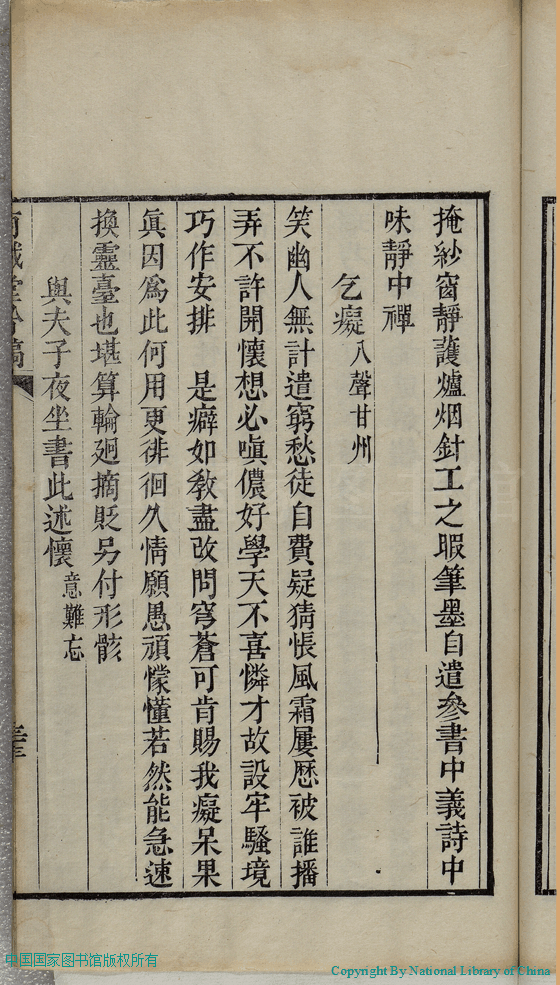 掩紗窗靜護爐烟針工之暇筆墨自遣參書中義詩中
味靜中禪
乞癡八聲甘州
笑幽人無計遣窮愁徒自費疑猜悵風霜屢歷被誰播
弄不許開懷想必嗔儂好學天不喜憐才故設牢騷境
巧作安排　是癖如教盡改問穹蒼可肯賜我癡呆果
眞因爲此何用更徘徊久情願愚頑懞懂若然能急速
換靈臺也堪算輪廻摘貶另付形骸
與夫子夜坐書此述懷意難忘
中国国家图书馆版权所有
Copyright By National Library of China